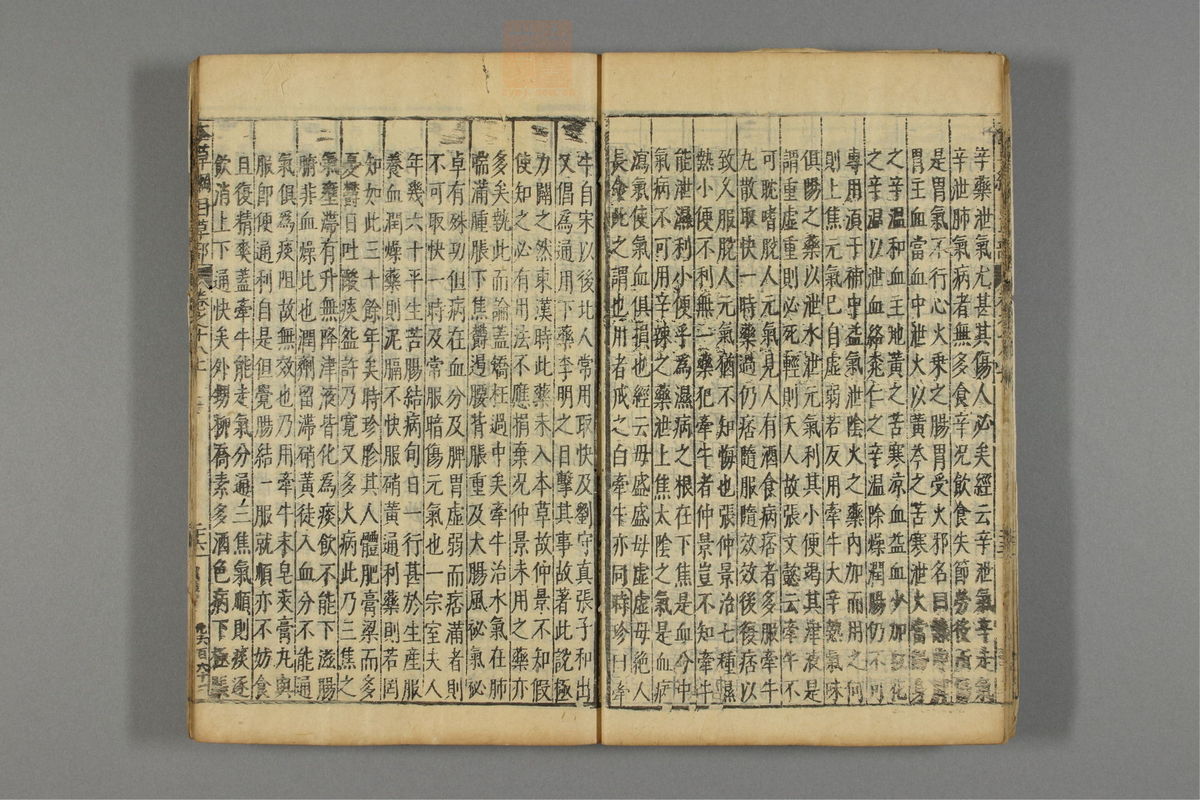 辛藥泄氣尤甚其傷人必矣經云辛泄氣辛走氣
辛泄肺氣病者無多食辛況飲食失節勞後所傷
是胃氣不行心火乘之腸胃受火邪名曰熱
胃主血當血中泄火以黃芩之苦寒泄火當歸身
之辛溫和血生地黃之苦寒涼血益血少加紅花
之辛溫以泄血絡桃仁之辛溫除燥潤腸仍不可
專用須于補中益氣泄陰火之藥內加而用之何
則上焦元氣已自虛弱若反用牽牛大辛熱氣味
俱陽之藥以泄水泄元氣利其小便竭其津液是
謂重虛重則必死輕則夭人故張文懿云牽牛不
可耽嗜脫人元氣見人有酒食病痞者多服牽牛
丸散取快一時藥過仍痞隨服隨效效後復痞以
致久服脫人元氣猶不知悔也張仲景治七種濕
熱小便不利無一藥犯牽牛者仲景豈不知牽牛
能泄濕利小便乎爲濕病之根在下焦是血分中
氣病不可用辛辣之藥泄上焦太陰之氣是血病
瀉氣使氣血俱損也經云毋盛盛毋虛虛毋絕人
長命此之謂也用者戒之白牽牛亦同時珍曰牽
牛自宋以後北人常用取快及劉守真張子和出
又倡為通用下藥李明之目擊其事故著此說極
力闢之然東漢時此藥未入本草故仲景不知假
使知之必有用法不應捐棄況仲景未用之藥亦
多矣執此而論蓋矯枉過中矣牽牛治水氣在肺
喘滿腫脹下焦鬱遏腰背脹重及大腸風秘氣秘
卓有殊功但病在血分及脾胃虛弱而痞滿者則
不可取快一時及常服暗傷元氣也一宗室夫人
年幾六十平生苦腸結病旬日一行甚於生產服
養血潤燥藥則泥膈不快服硝黃通利藥則若罔
知如此三十餘年矣時珍診其人體肥膏粱而多
憂鬱日吐酸痰盌許乃寬又多火病此乃三焦之
氣壅滯有升無降津液皆化為痰飲不能下滋腸
腑非血燥比也潤劑留滯硝黃徒入血分不能通
氣俱為痰阻故無效也乃用牽牛末皂莢膏丸與
服即便通利自是但覺腸結一服就順亦不妨食
且復精爽蓋牽牛能走氣分通三焦氣順則痰逐
飲消上下通快矣外甥柳喬素多酒色病下極脹
本草綱目草部 卷之十八上